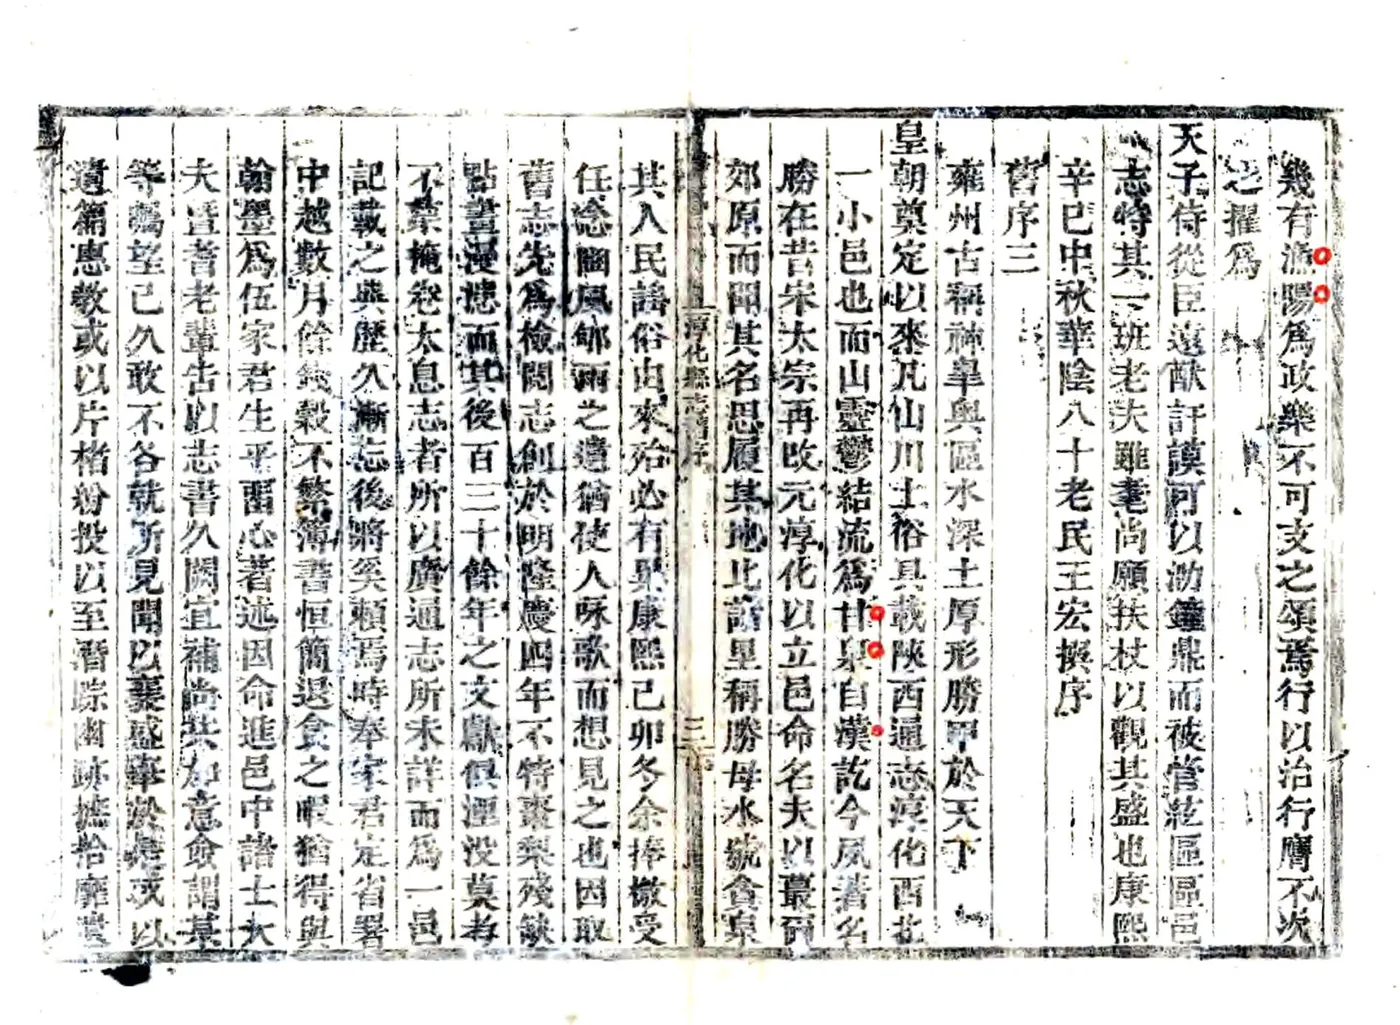 幾有漁陽為政樂不可支之頌焉行以治行膺不次
之擢為
天子侍從臣遠猷訏謨可以泐鐘鼎而被管絃區區邑
志特其一班老夫雖耄尚願扶杖以觀其盛也康熙
辛巳中秋華陰八十老民王宏撰序
舊序三
雍州古稱神臯與區水深土厚形勝甲於天下
皇朝奠定以來凡山川土俗具載陝西通志淳化西北
一小邑也而山靈鬱結流為甘泉自漢訖今夙著名
勝在昔宋太宗再改元淳化以立邑命名夫以蕞爾
郊原而聞其名思履其地北詣里稱勝母水號貪泉
淳化縣志舊序
三
其人民謠俗由來殆必有異康熙己卯冬余捧檄受
任念豳風郇雨之遺猶使人咏歌而想見之也因取
舊志先為檢閱志創於明隆慶四年不特棗梨殘缺
點畫漫漶而其後百三十餘年之文獻俱湮没莫考
不禁掩卷太息志者所以廣通志所未詳而為一邑
記載之與歷久漸忘後將奚賴焉時奉家君定省署
中越數月餘錢穀不繁簿書恒簡退食之暇猶得與
翰墨為伍家君生平留心著述因命進邑中諸士大
夫暨耆老輩告以志書久闕宜補尚共加意僉謂某
等矚望已久敢不各就所見聞以襄盛舉於是或以
遺籍惠教或以片楮紛投以至潛踪幽跡摭拾靡遺